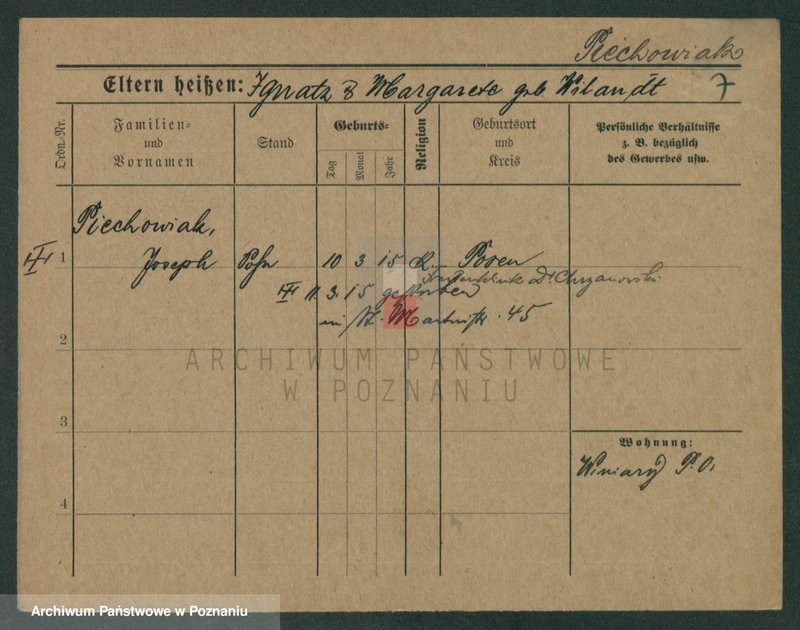 Piechowiak
Eltern heißen: Ignatz & Margarete geb. Wilandt 7
Ordn.-Nr.
Familien- und Vornamen
Stand
Geburts-
Tag
Monat
Jahr
Religion
Geburtsort und Kreis
Persönliche Verhältnisse
z. B. bezüglich
des Gewerbes usw.
Piechowiak,
1 Joseph Sohn 10 3 15 k. Posen
11. 3. 15 gestorben Dr Chrzanowski
in St. Martinstr. 45
2
ARCHIWUM PAŃSTWOWE
W POZNANIU
3
Wohnung:
Winiary P. O.
4
Archiwum Państwowe w Poznaniu